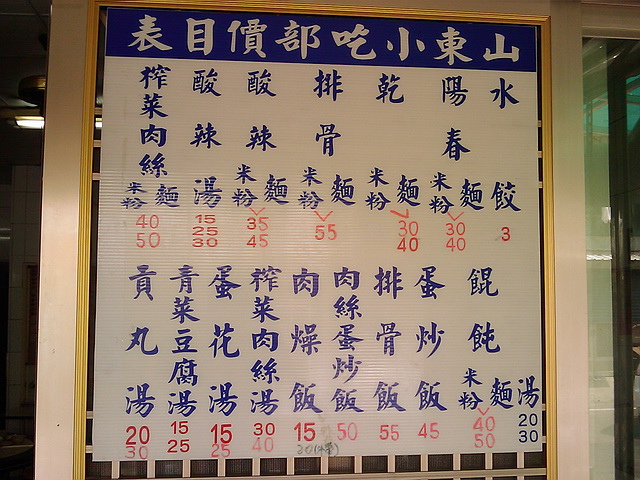 山東小吃部價目表
水餃 3
陽春麵 米粉 30 40
乾麵 米粉 30 40
排骨麵 米粉 55
酸辣麵 米粉 35 45
酸辣湯 15 25 30
榨菜肉絲麵 米粉 40 50
餛飩湯 20 30
麵 米粉 40 50
蛋炒飯 45
排骨飯 55
肉絲蛋炒飯 50
肉燥飯 15
榨菜肉絲湯 30 40
蛋花湯 15 25
青菜豆腐湯 15 25
貢丸湯 20 30